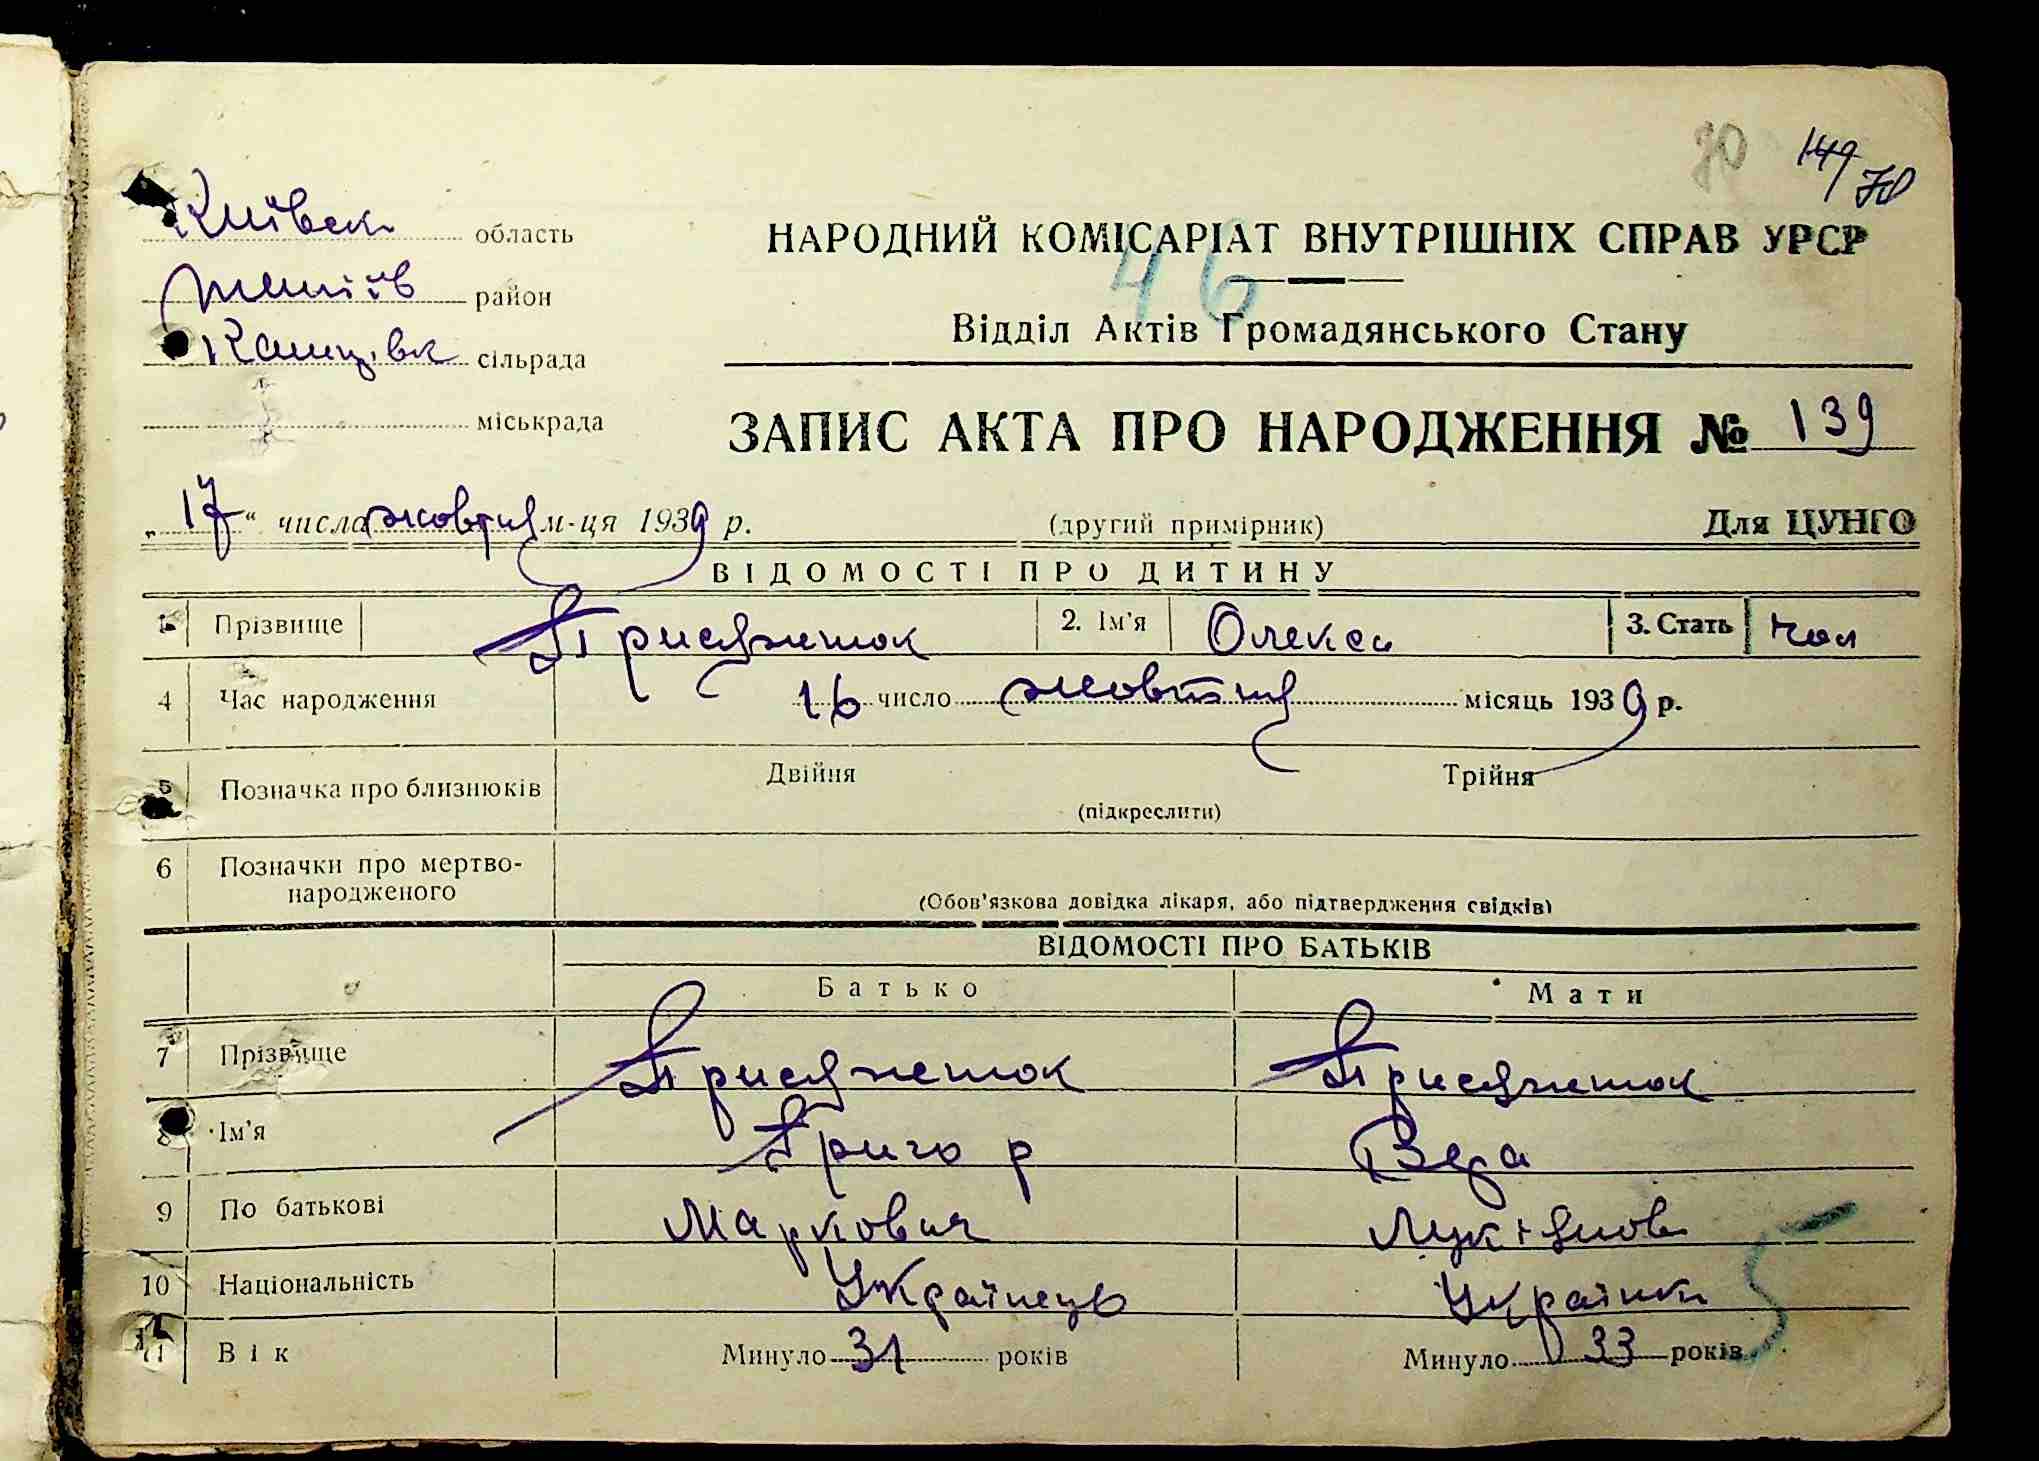 70 149 70
Київськ область
район
сільрада
міськрада
НАРОДНИЙ КОМІСАРІАТ ВНУТРІШНІХ СПРАВ УРСР
46
Відділ Актів Громадянського Стану
ЗАПИС АКТА ПРО НАРОДЖЕННЯ № 139
„17“ числа жовтня м-ця 1939 р. (другий примірник) Для ЦУНГО
ВІДОМОСТІ ПРО ДИТИНУ
1 Прізвище Присяжнюк 2. Ім'я Олекса 3. Стать чол
4 Час народження 16 число жовтня місяць 1939 р.
5 Позначка про близнюків Двійня Трійня
(підкреслити)
6 Позначки про мертво-
народженого
(Обов'язкова довідка лікаря, або підтвердження свідків)
ВІДОМОСТІ ПРО БАТЬКІВ
Батько Мати
7 Прізвище Присяжнюк Присяжнюк
8 Ім'я Григор Вера
9 По батькові Маркович Лук'янов
10 Національність Українець Українка
11 Вік Минуло 31 років Минуло 33 років